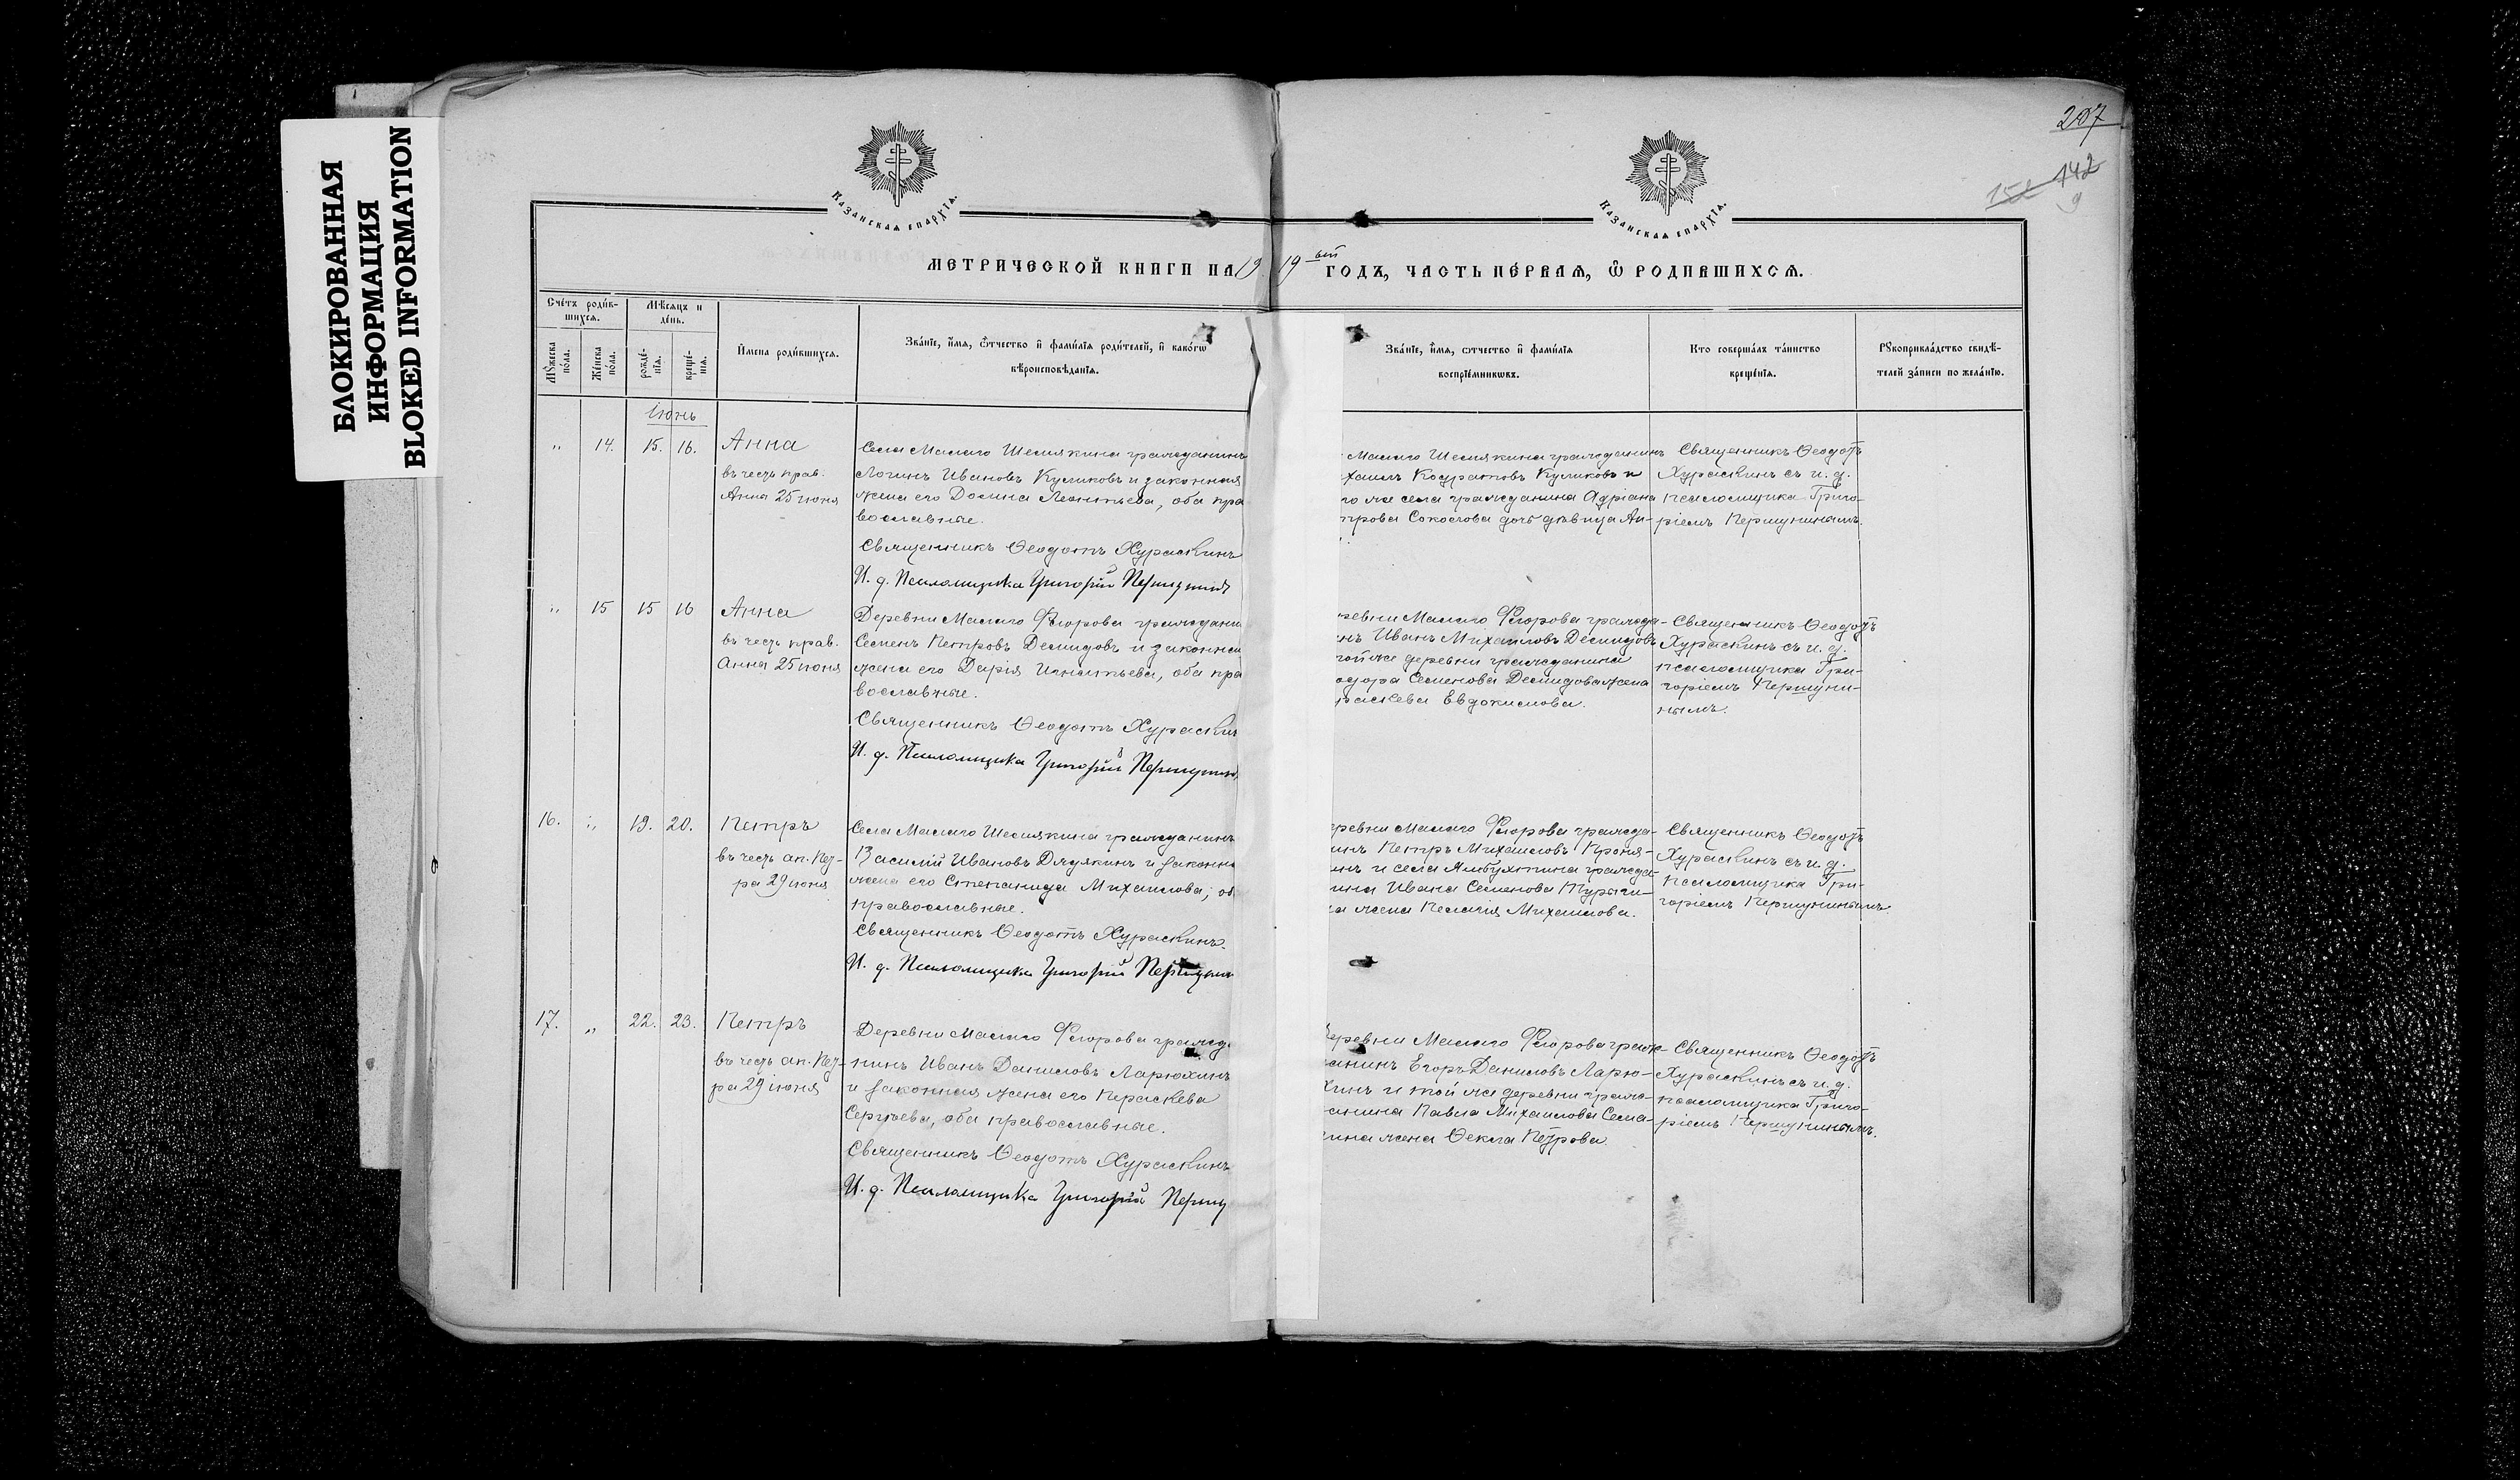 БЛОКИРОВАННАЯ
ИНФОРМАЦИЯ
BLOKED INFORMATION
207
152 142
9
Казанская епархїѧ.
Казанская епархїѧ.
МЕТРИЧЕСКОЙ КНИГИ НА 1919 ый ГОДЪ, ЧАСТЬ ПЕ́РВАѦ, Ѿ РОДИВШИХСѦ.
Сче́тъ роди́в-
шихсѧ.
Мѣ́сѧцъ и
де́нь.
Мꙋ́жеска
по́ла.
Же́нска
по́ла.
рожде́-
нїѧ.
креще́-
нїѧ.
И҆мена роди́вшихсѧ.
Зва́нїе, и҆́мѧ, ѻ҆́тчество и҆ фами́лїѧ роди́телей, и҆ како́гѡ
вѣроисповѣ́данїѧ.
Зва́нїе, и҆́мѧ, ѻ҆тчество и҆ фами́лїѧ
воспрїе́мникѡвъ.
Кто соверша́лъ та́инство
креще́нїѧ.
Рꙋкоприкла́дство свидѣ́-
телей за́писи по жела́нїю.
Іюнь
" 14. 15. 16. Анна
въ честь прав.
Анны 25 іюня
Села Малаго Шемякина гражданинъ
Логинъ Ивановъ Куликовъ и законная
жена его Домна Леонтьева, оба пра
вославные.
Священникъ Ѳеодотъ Хураскинъ
И. д. Псаломщика Григорій Першунинъ
Малаго Шемякина гражданинъ
хаилъ Кодратовъ Куликовъ и
го же села гражданина Адріана
трова Соколова дочь дѣвица Ан-
Священникъ Ѳеодотъ
Хураскинъ съ и. д.
псаломщика Григо-
ріемъ Першунинымъ.
" 15 15 16 Анна
въ честь прав.
Анны 25 іюня
Деревни Малаго Ѳедорова граждани
Семенъ Петровъ Демидовъ и законная
жена его Дарія Игнатьева, оба пра
вославные.
Священникъ Ѳеодотъ Хураскинъ
И. д. Псаломщика Григорій Першунинъ
ревни Малаго гражда-
нъ Иванъ Михаиловъ Демидовъ
той же деревни гражданина
одора Семенова Демидова жена
раскева Евдокимова.
Священникъ Ѳеодотъ
Хураскинъ съ и. д.
псаломщика Гри-
горіемъ Першуни-
нымъ.
16. " 19. 20. Петръ
въ честь ап. Пет-
ра 29 іюня
Села Малаго Шемякина гражданинъ
Василій Ивановъ Дядякинъ и законна
жена его Степанида Михаилова, об
православные.
Священникъ Ѳеодотъ Хураскинъ.
И. д. Псаломщика Григорій Першунин
еревни Малаго гражда-
инъ Петръ Михаиловъ
инъ и села гражда-
ина Ивана Семенова
на жена Пелагія Михаилова.
Священникъ Ѳеодотъ
Хураскинъ съ и. д.
псаломщика Гри-
горіемъ Першунинымъ.
17. " 22. 23. Петръ
въ честь ап. Пет-
ра 29 іюня
Деревни Малаго гражд
нинъ Иванъ Даниловъ Ларюхинъ
и законная жена его Параскева
Сергѣева, оба православные.
Священникъ Ѳеодотъ Хураскинъ
И. д. Псаломщика Григорій Першу
Деревни Малаго граж-
данинъ Егоръ Даниловъ Ларю-
хинъ и той же деревни граж-
анина Павла Михаилова Сема-
кина жена Ѳекла Петрова.
Священникъ Ѳеодотъ
Хураскинъ съ и. д.
псаломщика Григо-
ріемъ Першунинымъ.